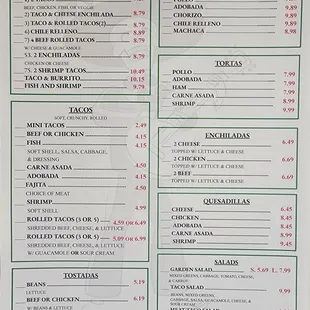 BEEF, CHICKEN, FISH, OR VEGGIE
2) TACO & CHEESE ENCHILADA 8.79
3) TACO & ROLLED TACOS(2) 8.79
6) CHILE RELLENO 8.79
7) 4 BEEF ROLLED TACOS 8.79
W/ CHEESE & GUACAMOLE
53. 2 ENCHILADAS 8.79
CHICKEN OR CHEESE
75. 2 SHRIMP TACOS 10.49
TACO & BURRITO 10.15
FISH AND SHRIMP 9.79
TACOS
SOFT, CRUNCHY, ROLLED
MINI TACOS 2.49
BEEF OR CHICKEN 4.15
FISH 4.15
SOFT SHELL, SALSA, CABBAGE,
& DRESSING
CARNE ASADA 4.50
ADOBADA 4.15
FAJITA 4.50
CHOICE OF MEAT
SHRIMP 4.99
SOFT SHELL, SALSA, CABBAGE
ROLLED TACOS (3 OR 5) 4.59 OR 6.49
SHREDDED BEEF, CHEESE, & LETTUCE
ROLLED TACOS (3 OR 5) 5.09 OR 6.99
SHREDDED BEEF, CHEESE, & LETTUCE
W/ GUACAMOLE OR SOUR CREAM
TOSTADAS
BEANS 5.19
LETTUCE
BEEF OR CHICKEN 6.19
W/ BEANS & LETTUCE
ADOBADA 9.89
CHORIZO 9.89
CHILE RELLENO 9.89
MACHACA 8.98
TORTAS
POLLO 7.99
ADOBADA 7.99
HAM 7.99
CARNE ASADA 7.99
SHRIMP 8.99
ENCHILADAS
2 CHEESE 6.49
TOPPED W/ LETTUCE & CHEESE
2 CHICKEN 6.69
TOPPED W/ LETTUCE & CHEESE
2 BEEF 6.69
TOPPED W/ LETTUCE & CHEESE
QUESADILLAS
CHEESE 6.45
CHICKEN 8.45
CARNE ASADA 8.45
SHRIMP 9.45
SALADS
GARDEN SALAD S. 5.69 L. 7.99
MIXED GREENS, CABBAGE, TOMATO, CHEESE,
& CARROT
TACO SALAD 7.99
BEANS, MIXED GREENS,
CABBAGE, SALSA, GUACAMOLE, CHEESE &
SOUR CREAM